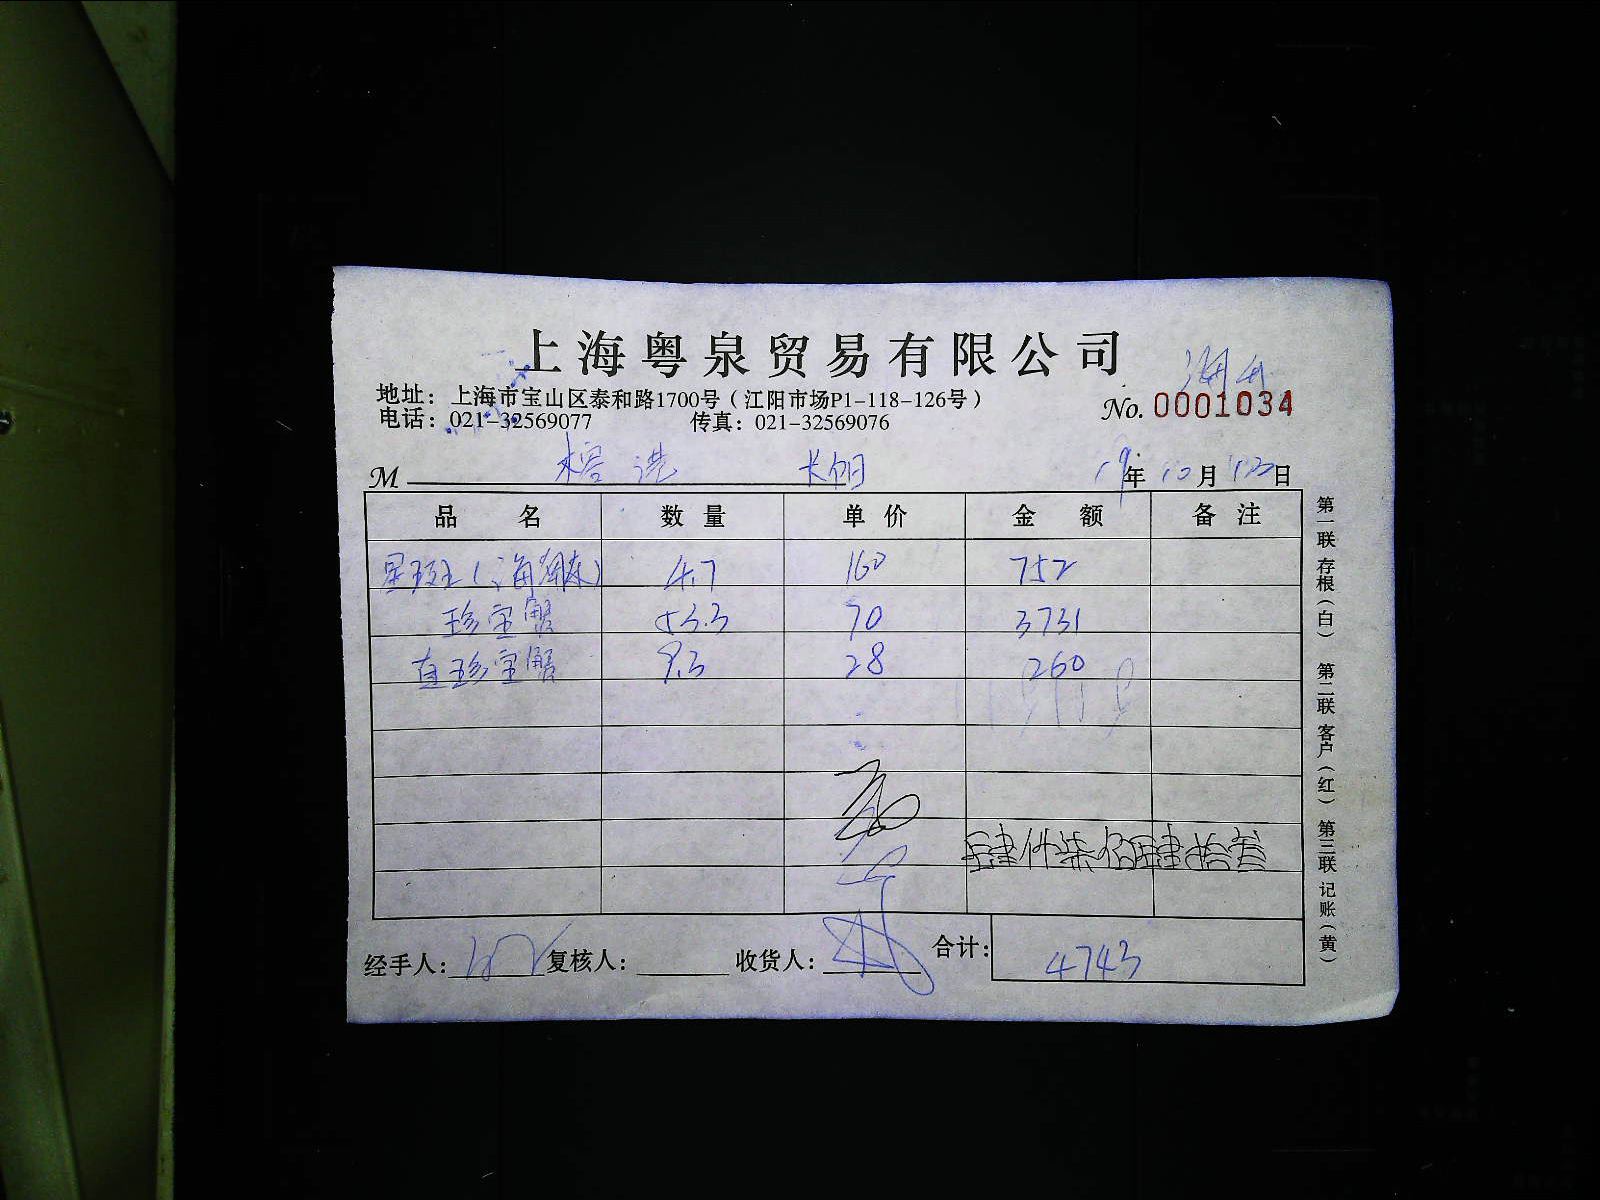 上海粤泉贸易有限公司
地址：上海市宝山区泰和路1700号（江阳市场P1-118-126号）
No. 0001034
电话：021-32569077 传真：021-32569076
M 榕港
19年10月13日
品 名 数量 单价 金 额 备注
4.7 160 752
珍宝蟹 53.3 70 3731
珍宝蟹 9.3 28 260
肆仟柒佰肆拾叁
经手人： 复核人： 收货人： 合计： 4743
第一联 存根（白） 第二联 客户（红） 第三联 记账（黄）